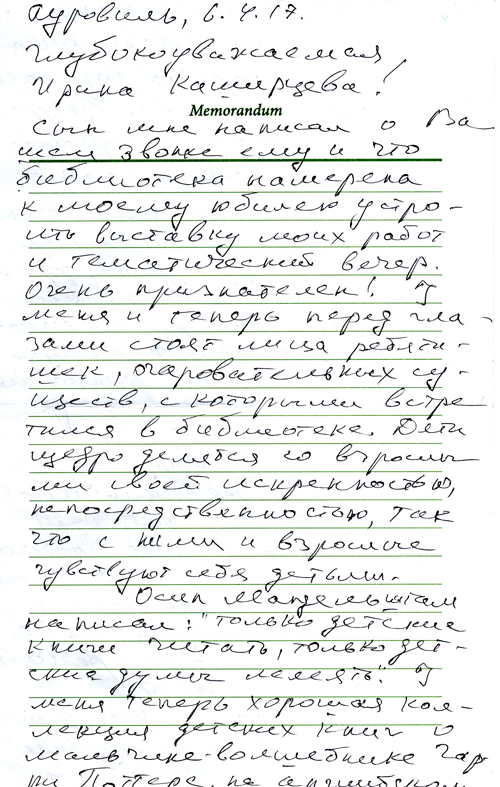 Гуровиль, 6.4.17.
Глубокоуважаемая
Ирина Каширцева!
Memorandum
Сын мне написал о Ва
шем звонке ему и что
библиотека намерена
к моему юбилею устро-
ить выставку моих работ
и тематический вечер.
Очень признателен! У
меня и теперь перед гла-
зами стоят лица ребяти-
шек, очаровательных су-
ществ, с которыми встре
тился в библиотеке. Дети
щедро делятся со взрослы
ми своей искренностью,
непосредственностью, так
что с ними и взрослые
чувствуют себя детьми.
Осип Мандельштам
написал: "только детские
книги читать, только дет-
ские думы лелеять". У
меня теперь хорошая кол-
лекция детских книг о
мальчике-волшебнике Гар-
ри Поттере, на английском